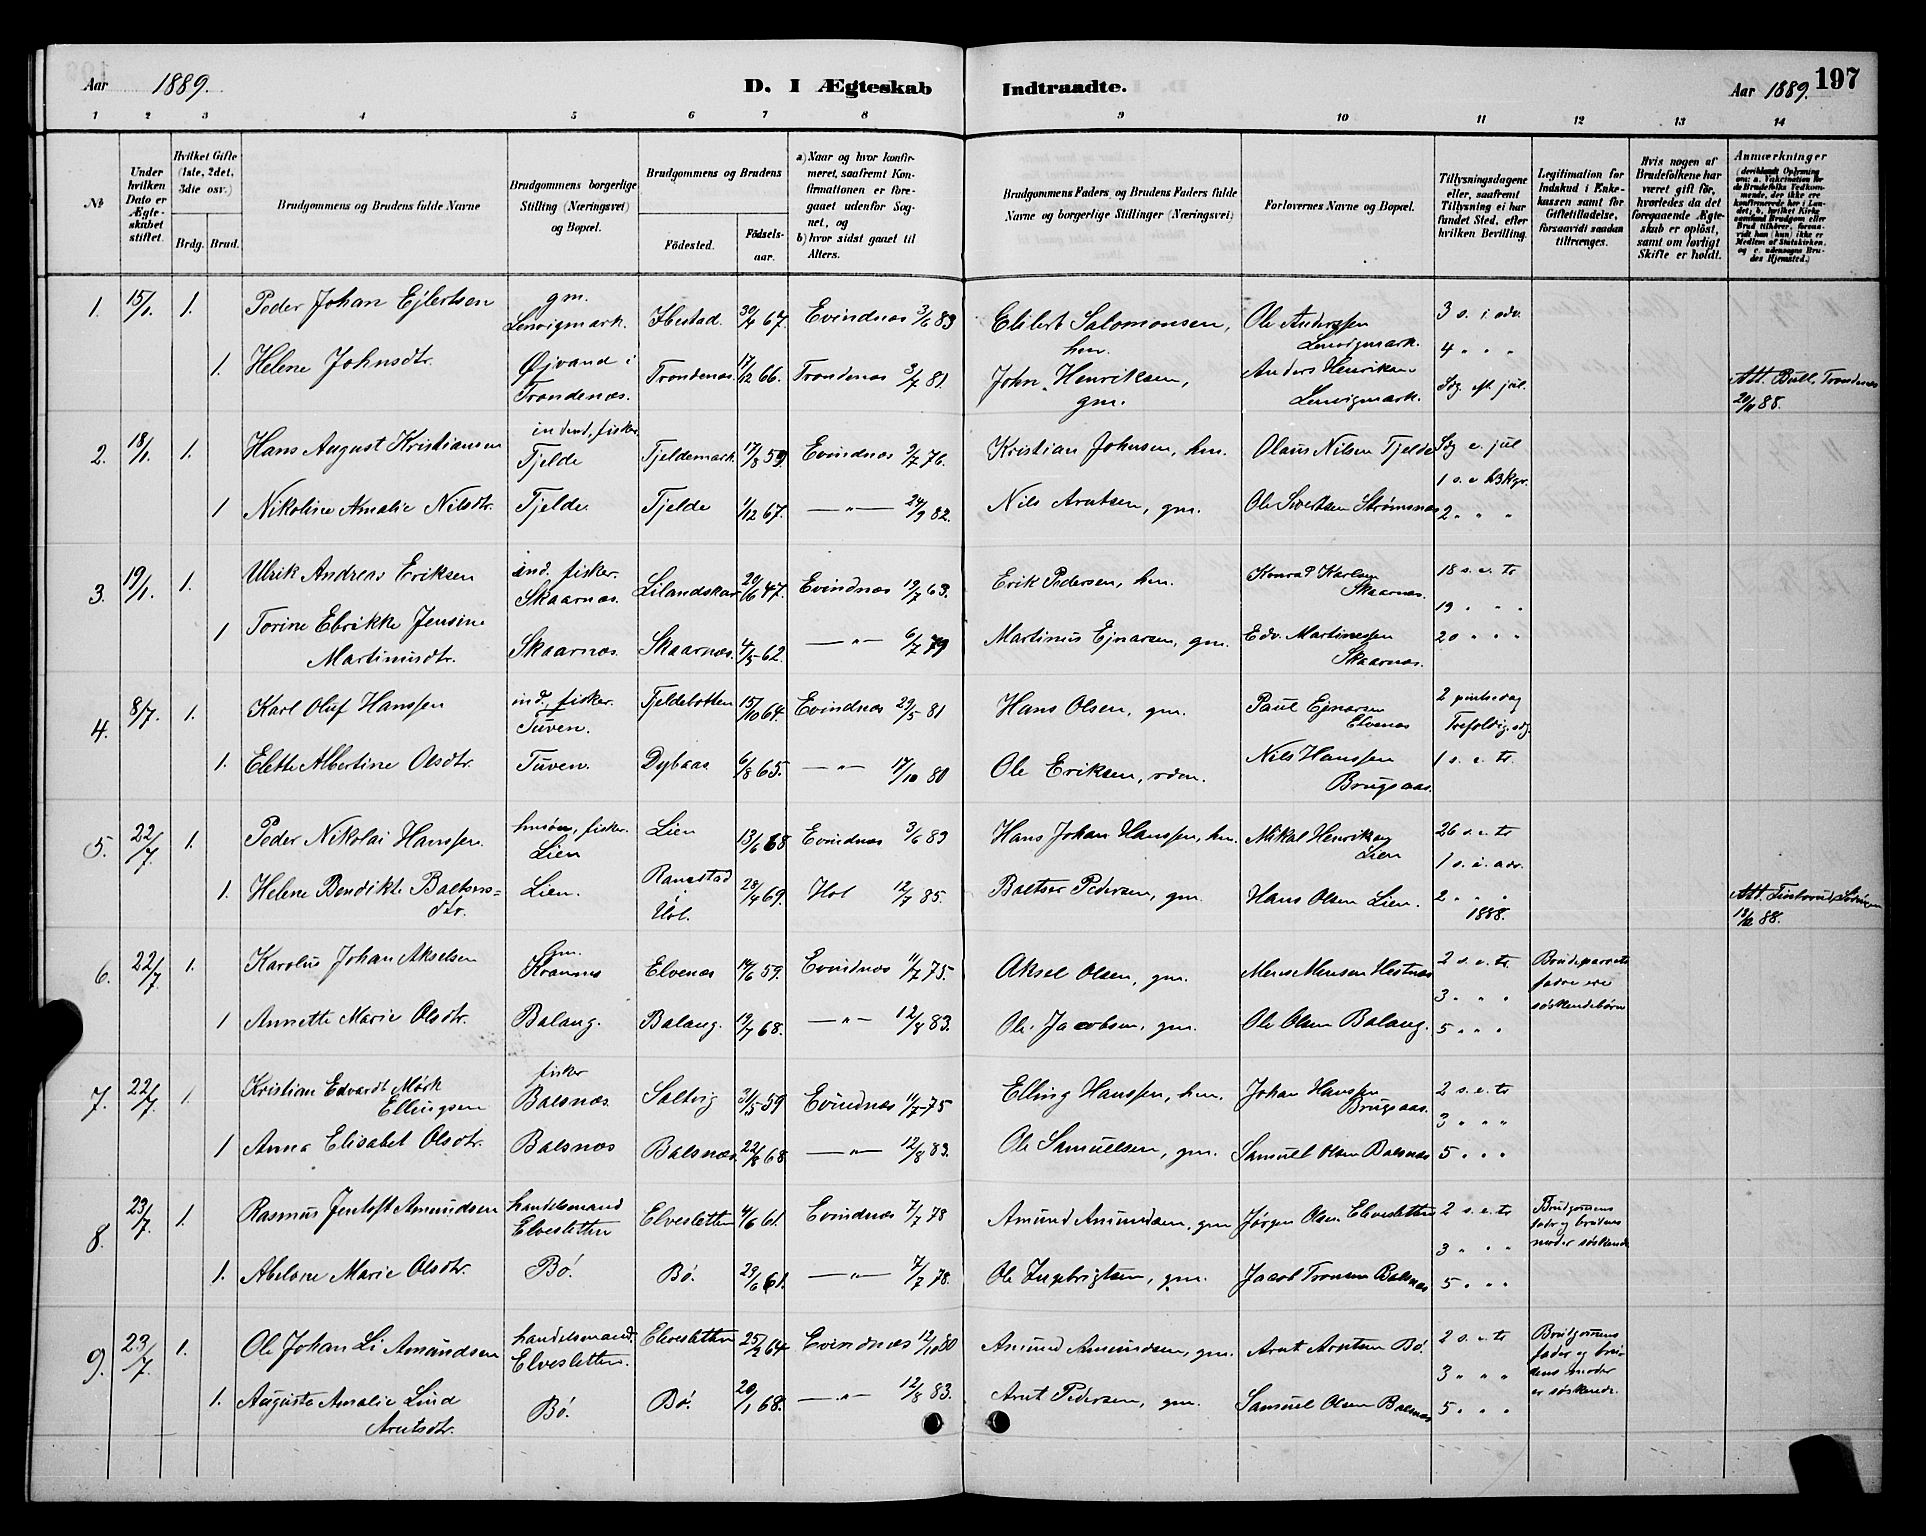 Aar 1889. D. I Ægteskab Indtraadte. Aar 1889. 197
1 2 3 4 5 6 7 8 9 10 11 12 13 14
№
Under hvilken Dato er Ægteskabet stiftet.
Hvilket Gifte (1ste, 2det, 3die osv.)
Brdg. Brud.
Brudgommens og Brudens fulde Navne
Brudgommens borgerlige Stilling (Næringsvei) og Bopæl.
Brudgommens og Brudens
Födested. Födsels-aar.
a) Naar og hvor konfirmeret, saafremt Konfirmationen er foregaaet udenfor Sognet, og
b) hvor sidst gaaet til Alters.
Brudgommens Faders og Brudens Faders fulde Navne og borgerlige Stillinger (Næringsvei)
Forlovernes Navne og Bopæl.
Tillysningsdagene eller, saafremt Tillysning ei har fundet Sted, efter hvilken Bevilling.
Legitimation for Indskud i Enkekassen samt for Giftetilladelse, forsaavidt saadan tiltrænges.
Hvis nogen af Brudefolkene har været gift för, hvorledes da det foregaaende Ægteskab er oplöst, samt om lovligt Skifte er holdt.
Anmærkninger
1. 15/1. 1. Peder Johan Ejlertsen gm. Lenvigmark. Ibestad. 30/4 67. Evindnæs 3/6 83 Eilert Salomonsen, hm. Ole Anderssen Lenvigmark. 3 s. i adv. 4 " " "
1 Helene Johnsdtr. Øjvand i Trondenæs. Trondenæs. 17/12 66. Trondenæs 3/7 81. John Henriksen, gm. Anders Henriksen Lenvigmark. Sdg. eft. jul. Att. Bull, Trondenæs 88.
2. 18/1. 1. Hans August Kristiansen inderst, fisker. Tjelde Tjeldemark. 17/8 59. Evindnæs 2/7 76. Kristian Johnsen, hm. Olaus Nilsen Tjelde Sdg e. jul 1 s. e h3kgr.
1 Nikoline Amalie Nilsdtr. Tjelde. Tjelde 1/12 67. — " — 24/9 82. Nils Arntsen, gm. Ole Sivertsen Strømsnæs 2 " " "
3. 19/1. 1. Ulrik Andreas Eriksen ind. fisker. Skaarnæs. Lilandskar 20/6 47. Evindnæs 19/7 63. Erik Pedersen, hm. Konrad Karlsen Skaarnæs. 18 s. e. tr 19 " " "
1 Torine Ebrikke Jensine Martinusdtr. Skaarnæs. Skaarnæs. 4/5 62. — " — 6/7 79 Martinus Ejnarsen, gm. Edv. Martinessen Skaarnæs. 20 " " "
4. 8/7. 1. Karl Oluf Hanssen ind., fisker. Tuven. Tjeldebotten 15/10 64. Evindnæs 29/5 81 Hans Olsen, gm. Paul Ejnarsen Elvenæs 2 pintsedag Trefoldig. sdg.
1. Elette Albertine Olsdtr. Tuven. Dybaas 6/8 65. — " — 17/10 80 Ole Eriksen, Nils Hanssen Brugsaas. 1 s. e. tr.
5. 22/7. 1. Peder Nikolai Hanssen. hmsøn, fisker. Lien Lien 13/6 68 Evindnæs 3/6 83 Hans Johan Hanssen, hm. Mikal Henriksen Lien 26 s. e. tr 1 s. i. adv.
1. Helene Bendikte Baltsersdtr. Lien. Ranestad i Hol. 28/4 69. Hol 12/7 85. Baltser Pedersen, gm. Hans Olsen Lien. 2 " " 1888. Att. 88.
6. 22/7. 1. Karolus Johan Akselsen Gm. Elvenæs 14/6 59. Evindnæs 11/7 75. Aksel Olsen, gm. Mons Monsen Hestnæs 2 s. e. tr. 3 " " " Brudeparrets fædre ere søskendebørn
1 Annette Marie Olsdtr. Balang. Balang. 19/7 68. — " — 12/8 83. Ole Jacobsen, gm. Ole Olsen Balang. 5 " " "
7. 22/7. 1. Kristian Edvardt Mørk Ellingsen fisker Balsnæs. Saltvig 31/5 59 Evindnæs 11/7 75 Elling Hanssen, hm. Johan Hanssen Brugsaas. 2 s. e. tr 3 " " "
1 Anna Elisabet Olsdtr. Balsnæs Balsnæs. 22/8 68. — " — 12/8 83. Ole Samuelsen, gm. Samuel Olsen Balsnæs 5 " " "
8. 23/7. 1. Rasmus Jentoft Amundsen handelsmand Elvesletten Elvesletten 4/6 61. Evindnæs 7/7 78 Amund Amundsen, gm Jørgen Olsen Elvesletten 2 s. e. tr 3 " " " Brudgomens fader og brudens moder søskende
1. Abelone Marie Olsdtr. Bø. Bø. 29/6 61. — " — 7/7 78. Ole Ingebrigtsen, gm. Jacob Tronsen Balsnæs 5 " " "
9. 23/7. 1. Ole Johan Li Amundsen handelsmand. Elvesletten. Elvesletten 25/2 64. Evindnæs 12/10 80 Amund Amundsen, gm. Arnt Arntsen Bø. 2 s. e. tr 3 " " " Brudgomens fader og brudens moder er søskende.
1. Auguste Amalie Lind Arntsdtr. Bø. Bø. 20/1 68. — " — 12/8 83. Arnt Pedersen, gm. Samuel Olsen Balsnæs 5 " " "